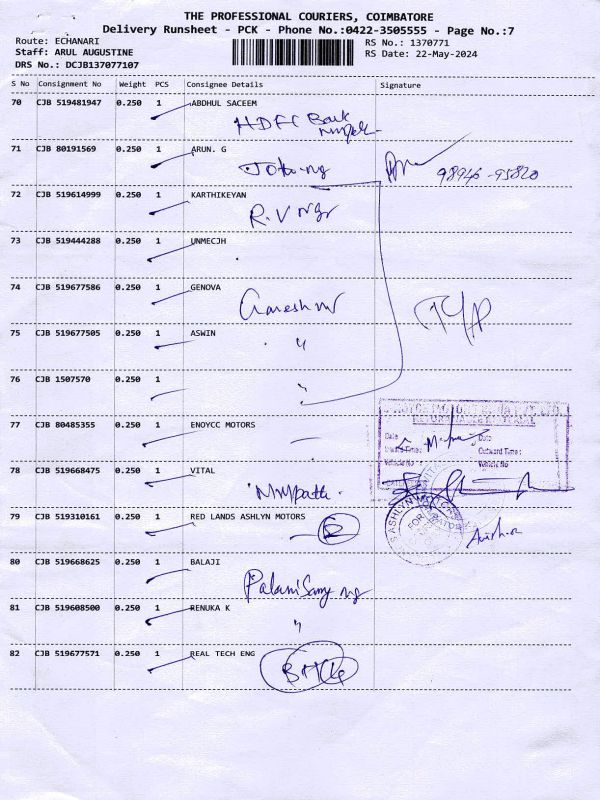 THE PROFESSIONAL COURIERS, COIMBATORE
Delivery Runsheet - PCK - Phone No.:0422-3505555 - Page No.:7
Route: ECHANARI
RS No.: 1370771
Staff: ARUL AUGUSTINE
RS Date: 22-May-2024
DRS No.: DCJB137077107
S No Consignment No Weight PCS Consignee Details Signature
70 CJB 519481947 0.250 1 ABDHUL SACEEM
HDFC Bank
71 CJB 80191569 0.250 1 ARUN. G
98946-95820
72 CJB 519614999 0.250 1 KARTHIKEYAN
R.V
73 CJB 519444288 0.250 1 UNMECJH
74 CJB 519677586 0.250 1 GENOVA
75 CJB 519677505 0.250 1 ASWIN
76 CJB 1507570 0.250 1
77 CJB 80485355 0.250 1 ENOYCC MOTORS
Date
Date
Inward Time:
Outward Time:
Vehicle No
Vehicle No
78 CJB 519668475 0.250 1 VITAL
79 CJB 519310161 0.250 1 RED LANDS ASHLYN MOTORS
80 CJB 519668625 0.250 1 BALAJI
81 CJB 519608500 0.250 1 RENUKA K
82 CJB 519677571 0.250 1 REAL TECH ENG